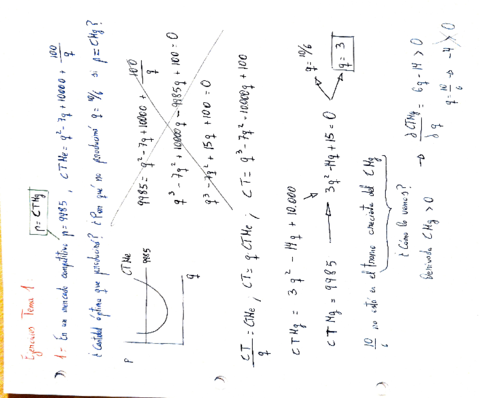 Ejercicios Tema 1
p = CTMg
1- En un mercado competitivo p = 9985, CTMe = q² - 7q + 10000 + 100/q
¿Cantidad óptima que producirá? ¿Por qué no produciría q = 10/6 si p = CMg?
P
CTMe
9985
q
9985 = q² - 7q + 10000 + 100/q
q³ - 7q² + 10000q - 9985q + 100 = 0
q³ - 7q² + 15q + 100 = 0
CT/q = CTMe, CT = q CTMe; CT = q³ - 7q² - 10000q + 100
CTMg = 3q² - 14q + 10.000
CTMg = 9985 → 3q² - 14q + 15 = 0
q = 10/6
q = 3
10/6 no está en el tramo creciente del CMg
¿Cómo lo vemos?
Derivada CMg > 0 → ∂CTMg/∂q = 6q - 14 > 0
q = 10/6 → -4 > 0